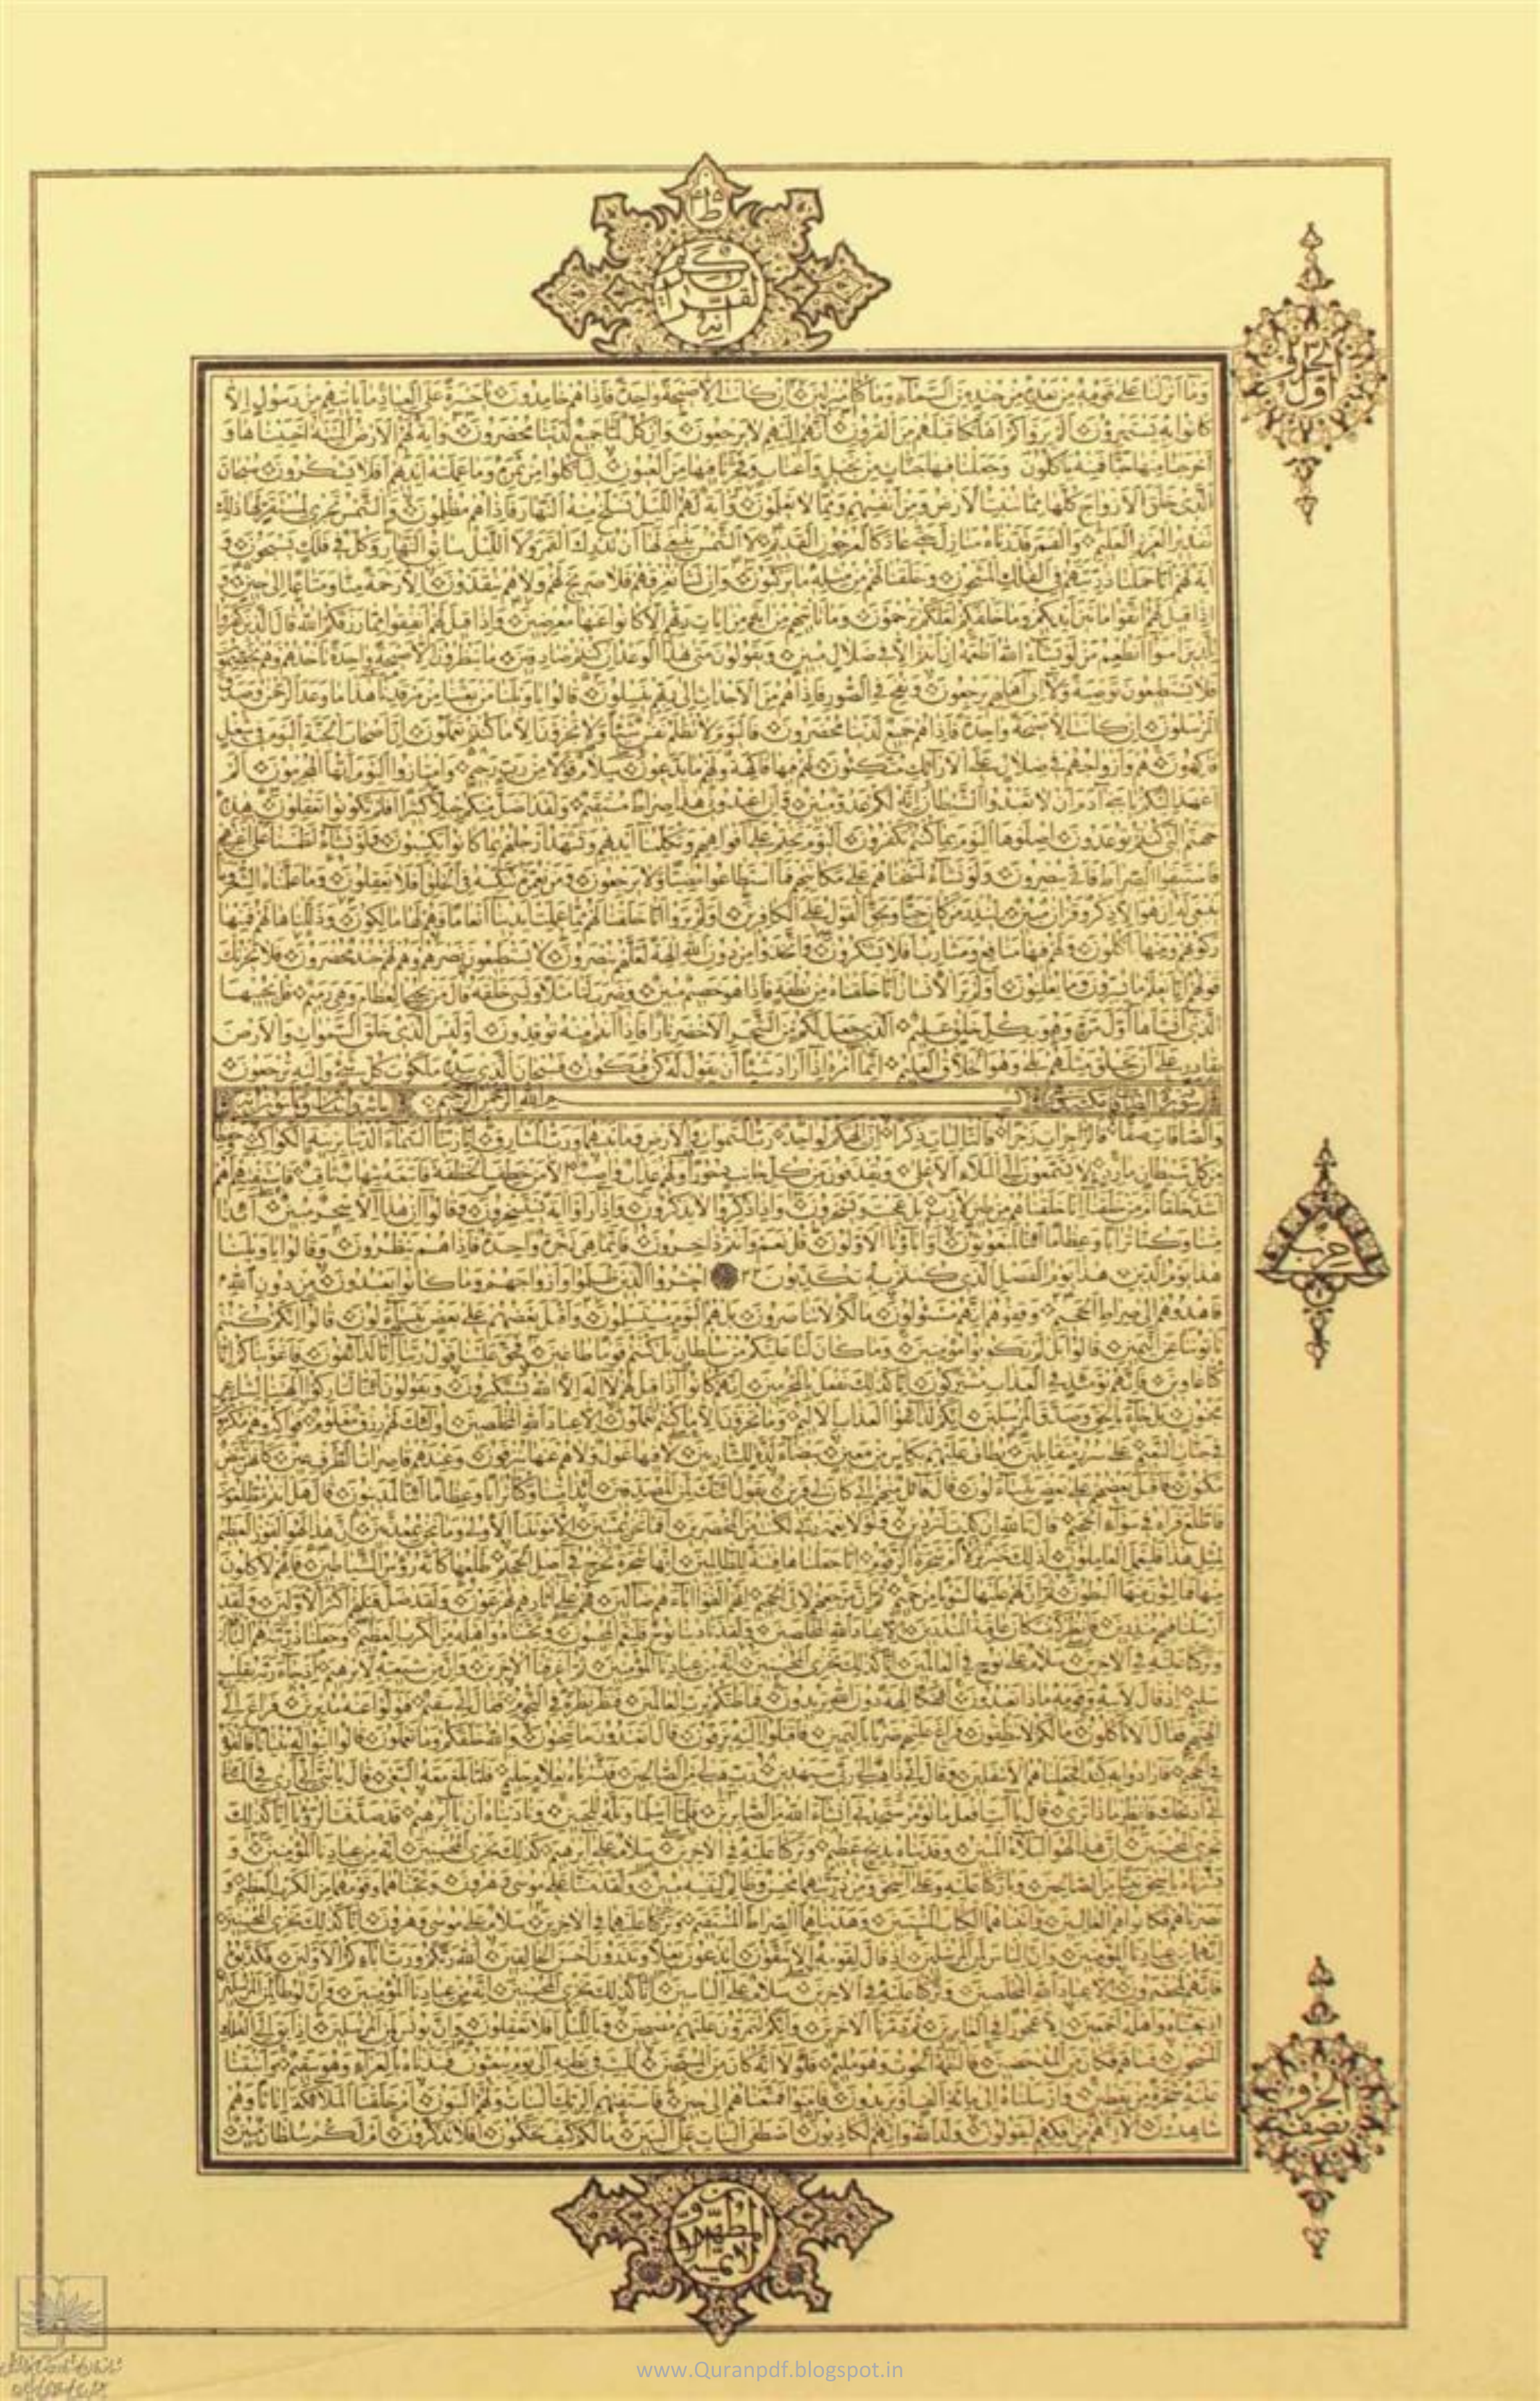 انه لقران كريم
اول
وما انزلنا على قومه من بعده من جند من السماء وما كنا منزلين ان كانت الا صيحة واحدة فاذا هم خامدون يا حسرة على العباد ما ياتيهم من رسول الا
كانوا به يستهزؤن الم يروا كم اهلكنا قبلهم من القرون انهم اليهم لا يرجعون وان كل لما جميع لدينا محضرون واية لهم الارض الميتة احييناها و
اخرجنا منها حبا فمنه ياكلون وجعلنا فيها جنات من نخيل واعناب وفجرنا فيها من العيون لياكلوا من ثمره وما عملته ايديهم افلا يشكرون سبحان
الذي خلق الازواج كلها مما تنبت الارض ومن انفسهم ومما لا يعلمون واية لهم الليل نسلخ منه النهار فاذا هم مظلمون والشمس تجري لمستقر لها ذلك
تقدير العزيز العليم والقمر قدرناه منازل حتى عاد كالعرجون القديم لا الشمس ينبغي لها ان تدرك القمر ولا الليل سابق النهار وكل في فلك يسبحون و
اية لهم انا حملنا ذريتهم في الفلك المشحون وخلقنا لهم من مثله ما يركبون وان نشا نغرقهم فلا صريخ لهم ولا هم ينقذون الا رحمة منا ومتاعا الى حين و
اذا قيل لهم اتقوا ما بين ايديكم وما خلفكم لعلكم ترحمون وما تاتيهم من اية من ايات ربهم الا كانوا عنها معرضين واذا قيل لهم انفقوا مما رزقكم الله قال الذين كفروا
للذين امنوا انطعم من لو يشاء الله اطعمه ان انتم الا في ضلال مبين ويقولون متى هذا الوعد ان كنتم صادقين ما ينظرون الا صيحة واحدة تاخذهم وهم يخصمون
فلا يستطيعون توصية ولا الى اهلهم يرجعون ونفخ في الصور فاذا هم من الاجداث الى ربهم ينسلون قالوا يا ويلنا من بعثنا من مرقدنا هذا ما وعد الرحمن وصدق
المرسلون ان كانت الا صيحة واحدة فاذا هم جميع لدينا محضرون فاليوم لا تظلم نفس شيئا ولا تجزون الا ما كنتم تعملون ان اصحاب الجنة اليوم في شغل
فاكهون هم وازواجهم في ظلال على الارائك متكئون لهم فيها فاكهة ولهم ما يدعون سلام قولا من رب رحيم وامتازوا اليوم ايها المجرمون الم
اعهد اليكم يا بني ادم ان لا تعبدوا الشيطان انه لكم عدو مبين وان اعبدوني هذا صراط مستقيم ولقد اضل منكم جبلا كثيرا افلم تكونوا تعقلون هذه
جهنم التي كنتم توعدون اصلوها اليوم بما كنتم تكفرون اليوم نختم على افواههم وتكلمنا ايديهم وتشهد ارجلهم بما كانوا يكسبون ولو نشاء لطمسنا على اعينهم
فاستبقوا الصراط فانى يبصرون ولو نشاء لمسخناهم على مكانتهم فما استطاعوا مضيا ولا يرجعون ومن نعمره ننكسه في الخلق افلا يعقلون وما علمناه الشعر وما
ينبغي له ان هو الا ذكر وقران مبين لينذر من كان حيا ويحق القول على الكافرين اولم يروا انا خلقنا لهم مما عملت ايدينا انعاما فهم لها مالكون وذللناها لهم فمنها
ركوبهم ومنها ياكلون ولهم فيها منافع ومشارب افلا يشكرون واتخذوا من دون الله الهة لعلهم ينصرون لا يستطيعون نصرهم وهم لهم جند محضرون فلا يحزنك
قولهم انا نعلم ما يسرون وما يعلنون اولم ير الانسان انا خلقناه من نطفة فاذا هو خصيم مبين وضرب لنا مثلا ونسي خلقه قال من يحيي العظام وهي رميم قل يحييها
الذي انشاها اول مرة وهو بكل خلق عليم الذي جعل لكم من الشجر الاخضر نارا فاذا انتم منه توقدون اوليس الذي خلق السموات والارض
بقادر على ان يخلق مثلهم بلى وهو الخلاق العليم انما امره اذا اراد شيئا ان يقول له كن فيكون فسبحان الذي بيده ملكوت كل شيء واليه ترجعون
بسم الله الرحمن الرحيم
والصافات صفا فالزاجرات زجرا فالتاليات ذكرا ان الهكم لواحد رب السموات والارض وما بينهما ورب المشارق انا زينا السماء الدنيا بزينة الكواكب وحفظا
من كل شيطان مارد لا يسمعون الى الملاء الاعلى ويقذفون من كل جانب دحورا ولهم عذاب واصب الا من خطف الخطفة فاتبعه شهاب ثاقب فاستفتهم اهم
اشد خلقا ام من خلقنا انا خلقناهم من طين لازب بل عجبت ويسخرون واذا ذكروا لا يذكرون واذا راوا اية يستسخرون وقالوا ان هذا الا سحر مبين ائذا
متنا وكنا ترابا وعظاما ائنا لمبعوثون او اباؤنا الاولون قل نعم وانتم داخرون فانما هي زجرة واحدة فاذا هم ينظرون وقالوا يا ويلنا
هذا يوم الدين هذا يوم الفصل الذي كنتم به تكذبون احشروا الذين ظلموا وازواجهم وما كانوا يعبدون من دون الله
فاهدوهم الى صراط الجحيم وقفوهم انهم مسؤلون ما لكم لا تناصرون بل هم اليوم مستسلمون واقبل بعضهم على بعض يتساءلون قالوا انكم كنتم
تاتوننا عن اليمين قالوا بل لم تكونوا مؤمنين وما كان لنا عليكم من سلطان بل كنتم قوما طاغين فحق علينا قول ربنا انا لذائقون فاغويناكم انا
كنا غاوين فانهم يومئذ في العذاب مشتركون انا كذلك نفعل بالمجرمين انهم كانوا اذا قيل لهم لا اله الا الله يستكبرون ويقولون ائنا لتاركوا الهتنا لشاعر
مجنون بل جاء بالحق وصدق المرسلين انكم لذائقوا العذاب الاليم وما تجزون الا ما كنتم تعملون الا عباد الله المخلصين اولئك لهم رزق معلوم فواكه وهم مكرمون
في جنات النعيم على سرر متقابلين يطاف عليهم بكاس من معين بيضاء لذة للشاربين لا فيها غول ولا هم عنها ينزفون وعندهم قاصرات الطرف عين كانهن بيض
مكنون فاقبل بعضهم على بعض يتساءلون قال قائل منهم اني كان لي قرين يقول ائنك لمن المصدقين ائذا متنا وكنا ترابا وعظاما ائنا لمدينون قال هل انتم مطلعون
فاطلع فراه في سواء الجحيم قال تالله ان كدت لتردين ولولا نعمة ربي لكنت من المحضرين افما نحن بميتين الا موتتنا الاولى وما نحن بمعذبين ان هذا لهو الفوز العظيم
لمثل هذا فليعمل العاملون اذلك خير نزلا ام شجرة الزقوم انا جعلناها فتنة للظالمين انها شجرة تخرج في اصل الجحيم طلعها كانه رؤس الشياطين فانهم لاكلون
منها فمالئون منها البطون ثم ان لهم عليها لشوبا من حميم ثم ان مرجعهم لالى الجحيم انهم الفوا اباءهم ضالين فهم على اثارهم يهرعون ولقد ضل قبلهم اكثر الاولين ولقد
ارسلنا فيهم منذرين فانظر كيف كان عاقبة المنذرين الا عباد الله المخلصين ولقد نادينا نوح فلنعم المجيبون ونجيناه واهله من الكرب العظيم وجعلنا ذريته هم الباقين
وتركنا عليه في الاخرين سلام على نوح في العالمين انا كذلك نجزي المحسنين انه من عبادنا المؤمنين ثم اغرقنا الاخرين وان من شيعته لابرهيم اذ جاء ربه بقلب
سليم اذ قال لابيه وقومه ماذا تعبدون ائفكا الهة دون الله تريدون فما ظنكم برب العالمين فنظر نظرة في النجوم فقال اني سقيم فتولوا عنه مدبرين فراغ الى
الهتهم فقال الا تاكلون ما لكم لا تنطقون فراغ عليهم ضربا باليمين فاقبلوا اليه يزفون قال اتعبدون ما تنحتون والله خلقكم وما تعملون قالوا ابنوا له بنيانا فالقوه
في الجحيم فارادوا به كيدا فجعلناهم الاسفلين وقال اني ذاهب الى ربي سيهدين رب هب لي من الصالحين فبشرناه بغلام حليم فلما بلغ معه السعي قال يا بني اني ارى في المنام
اني اذبحك فانظر ماذا ترى قال يا ابت افعل ما تؤمر ستجدني ان شاء الله من الصابرين فلما اسلما وتله للجبين وناديناه ان يا ابرهيم قد صدقت الرؤيا انا كذلك
نجزي المحسنين ان هذا لهو البلاء المبين وفديناه بذبح عظيم وتركنا عليه في الاخرين سلام على ابرهيم كذلك نجزي المحسنين انه من عبادنا المؤمنين و
بشرناه باسحق نبيا من الصالحين وباركنا عليه وعلى اسحق ومن ذريتهما محسن وظالم لنفسه مبين ولقد مننا على موسى وهرون ونجيناهما وقومهما من الكرب العظيم و
نصرناهم فكانوا هم الغالبين واتيناهما الكتاب المستبين وهديناهما الصراط المستقيم وتركنا عليهما في الاخرين سلام على موسى وهرون انا كذلك نجزي المحسنين
انهما من عبادنا المؤمنين وان الياس لمن المرسلين اذ قال لقومه الا تتقون اتدعون بعلا وتذرون احسن الخالقين الله ربكم ورب ابائكم الاولين فكذبوه
فانهم لمحضرون الا عباد الله المخلصين وتركنا عليه في الاخرين سلام على الياسين انا كذلك نجزي المحسنين انه من عبادنا المؤمنين وان لوطا لمن المرسلين
اذ نجيناه واهله اجمعين الا عجوزا في الغابرين ثم دمرنا الاخرين وانكم لتمرون عليهم مصبحين وبالليل افلا تعقلون وان يونس لمن المرسلين اذ ابق الى الفلك
المشحون فساهم فكان من المدحضين فالتقمه الحوت وهو مليم فلولا انه كان من المسبحين للبث في بطنه الى يوم يبعثون فنبذناه بالعراء وهو سقيم وانبتنا
عليه شجرة من يقطين وارسلناه الى مائة الف او يزيدون فامنوا فمتعناهم الى حين فاستفتهم الربك البنات ولهم البنون ام خلقنا الملائكة اناثا وهم
شاهدون الا انهم من افكهم ليقولون ولد الله وانهم لكاذبون اصطفى البنات على البنين ما لكم كيف تحكمون افلا تذكرون ام لكم سلطان مبين
حزب
نصف
لا يمسه الا المطهرون
www.Quranpdf.blogspot.in